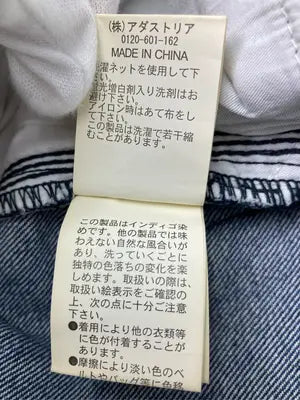 (株)アダストリア
0120-601-162
MADE IN CHINA
濯ネットを使用して下
さい。
光増白剤入り洗剤はお
避け下さい。
アイロン時はあて布をし
て下さい。
この製品は洗濯で若干縮
みます。
この製品はインディゴ染
めです。他の製品では味
わえない自然な風合いが
あり、洗っていくごとに
独特の色落ちの変化を楽
しめます。取扱いの際は、
取扱い絵表示をご確認の
上、次の点に十分ご注意
下さい。
●着用により他の衣類等
に色が付着することが
あります。
●摩擦により淡い色のベ
ルトやバッグ等に色移